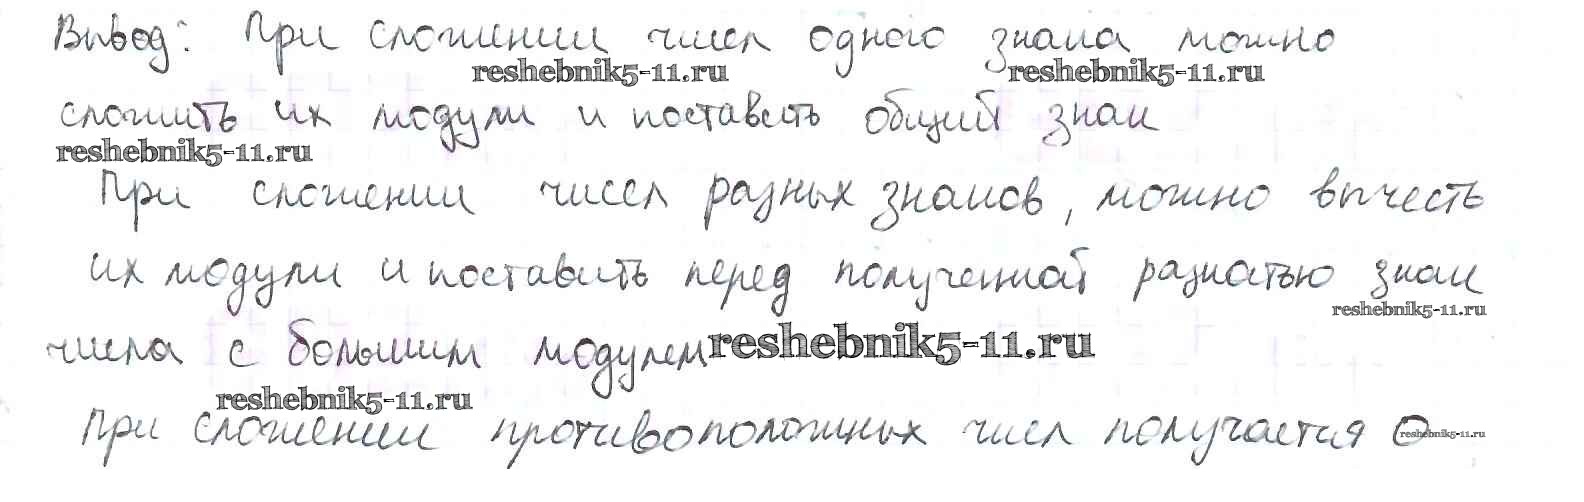 Вывод: При сложении чисел одного знака можно
reshebnik5-11.ru reshebnik5-11.ru
сложить их модули и поставить общий знак
reshebnik5-11.ru
При сложении чисел разных знаков, можно вычесть
их модули и поставить перед полученной разностью знак
reshebnik5-11.ru
числа с большим модулем reshebnik5-11.ru
reshebnik5-11.ru
При сложении противоположных чисел получается 0
reshebnik5-11.ru